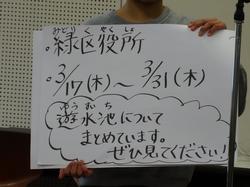 みどりくやくしょ
・緑区役所
・3/17(木)～3/31(木)
ゆうすいち
遊水池について
まとめています。
ぜひ見てください!